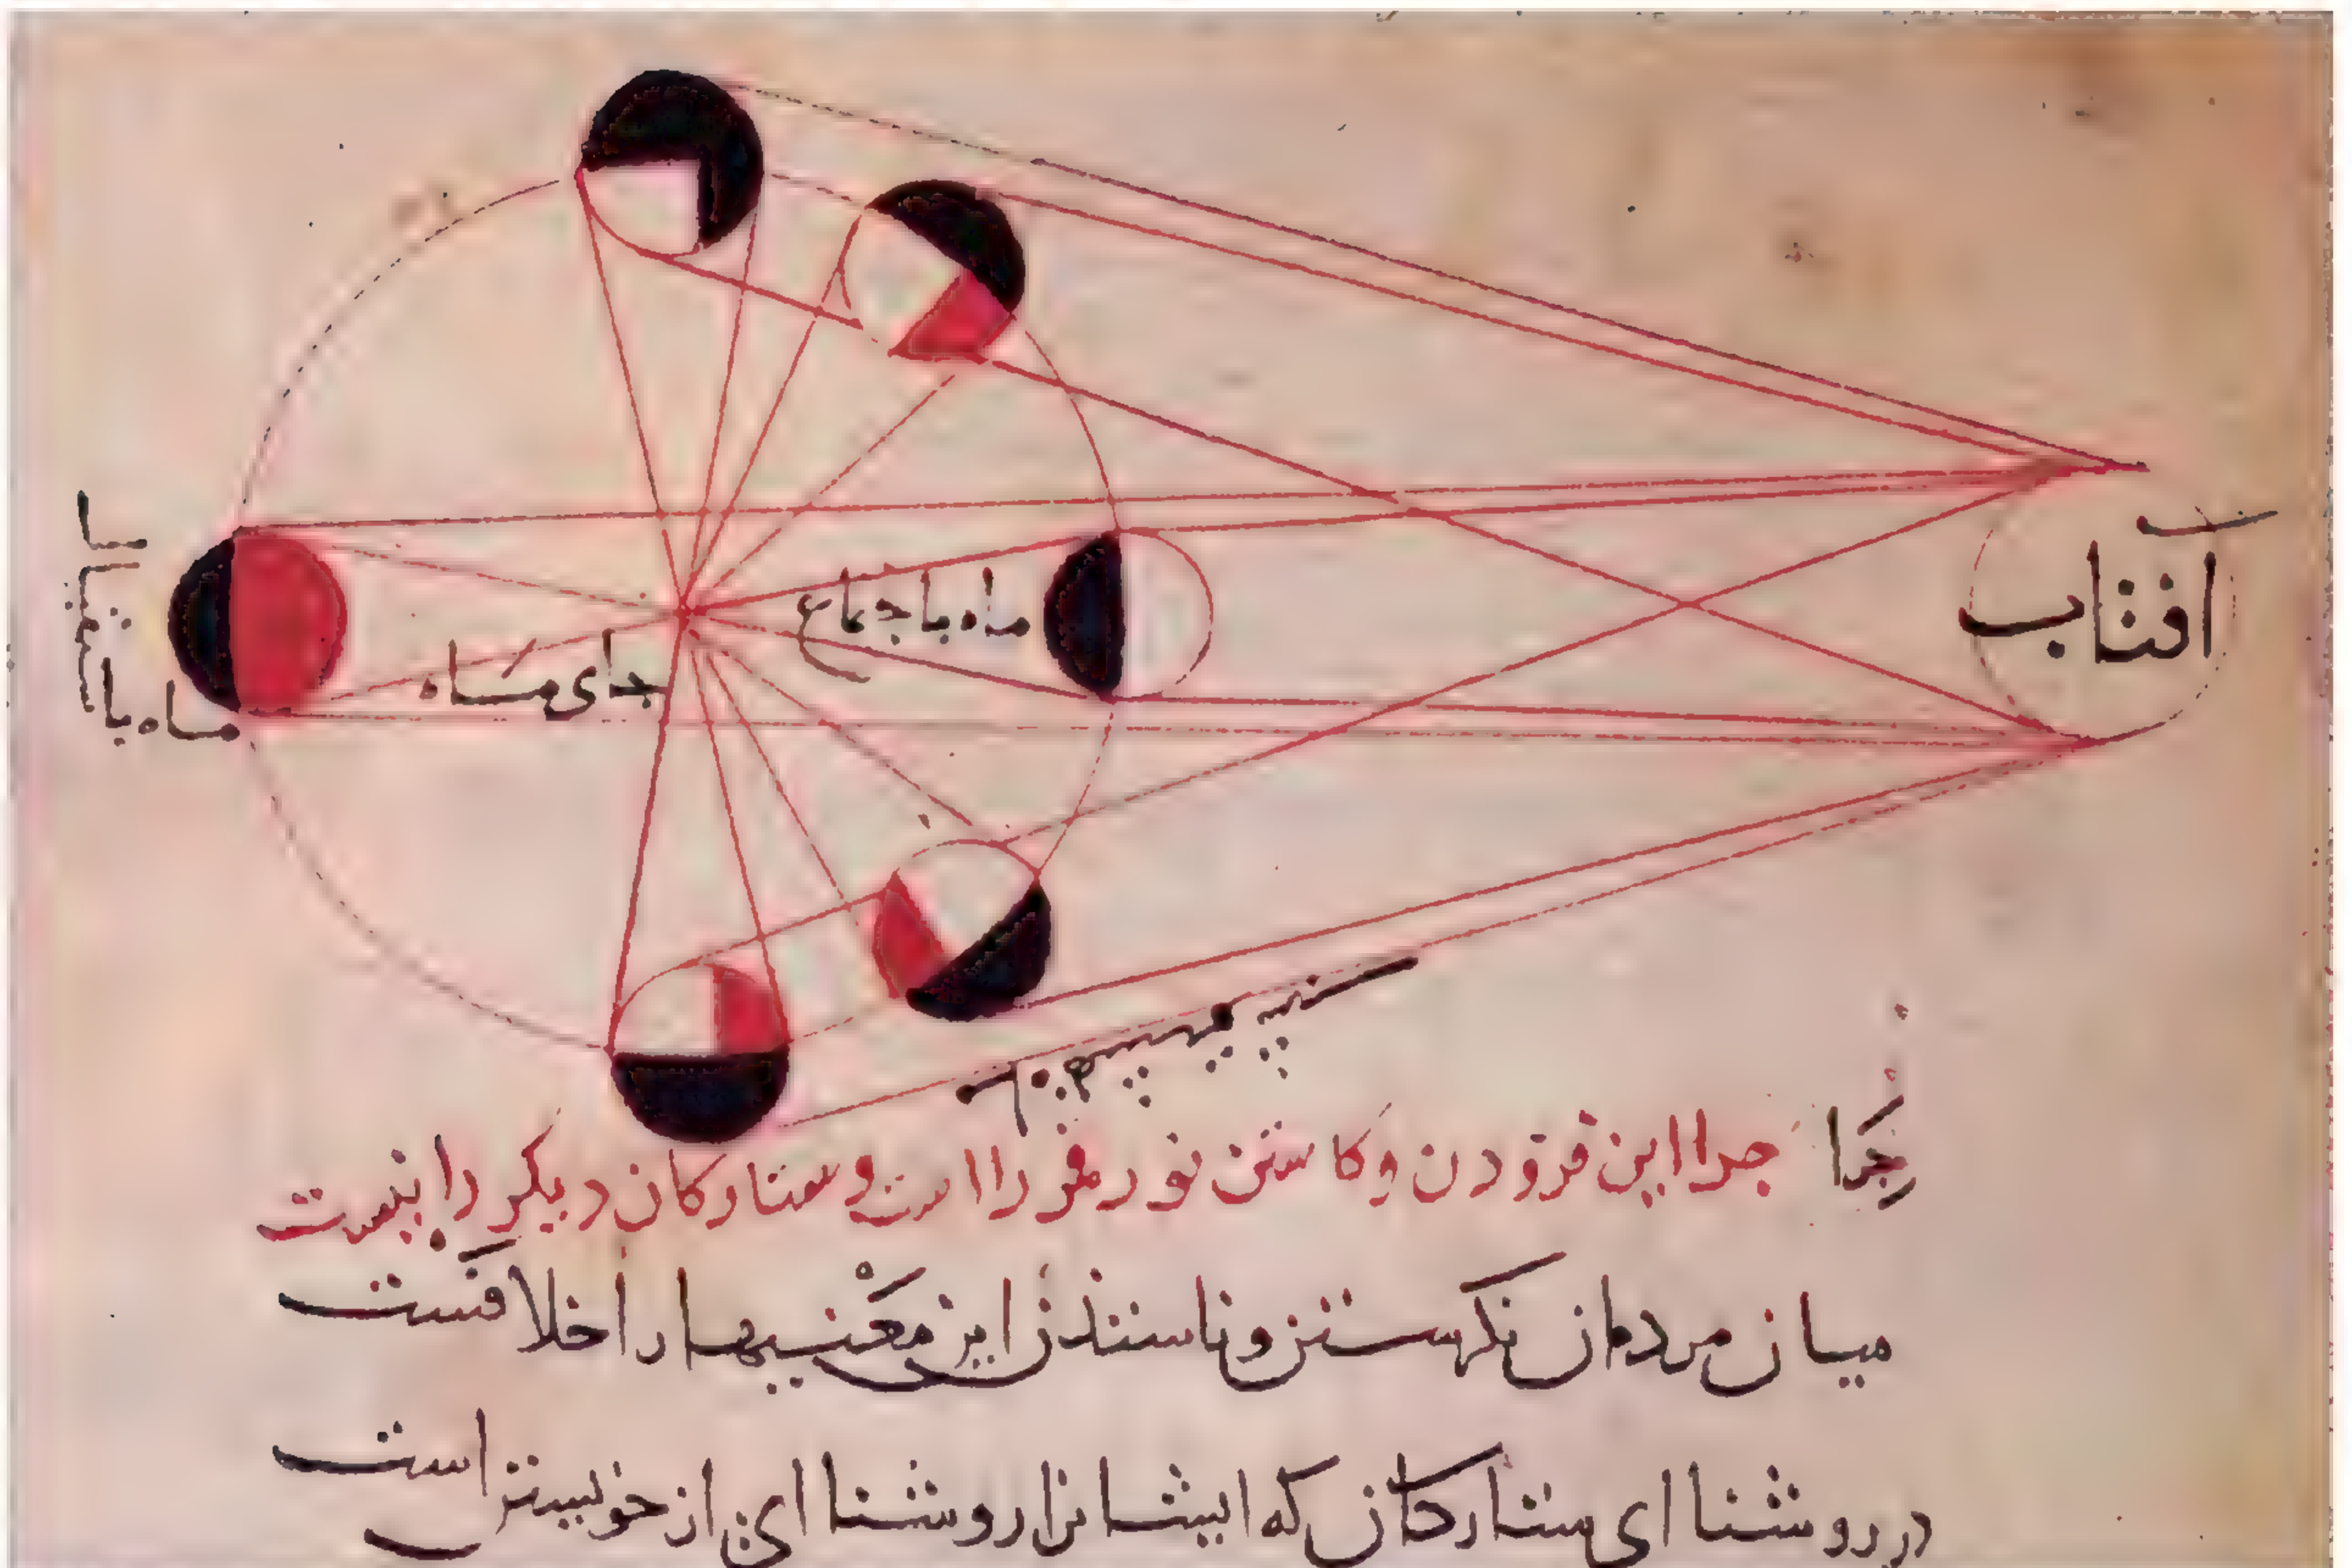 آفتاب
ماه باجتماع
جای ماه
ماه باستقبال
چرا این فزودن و کاستن نور قمر را است و ستارکان دیکر را نیست
میان مردمان نکهستن و ناسنندن این معنیها را خلافست
در روشنا ای ستارکان که ایشانرا روشنا ای از خویشتن است